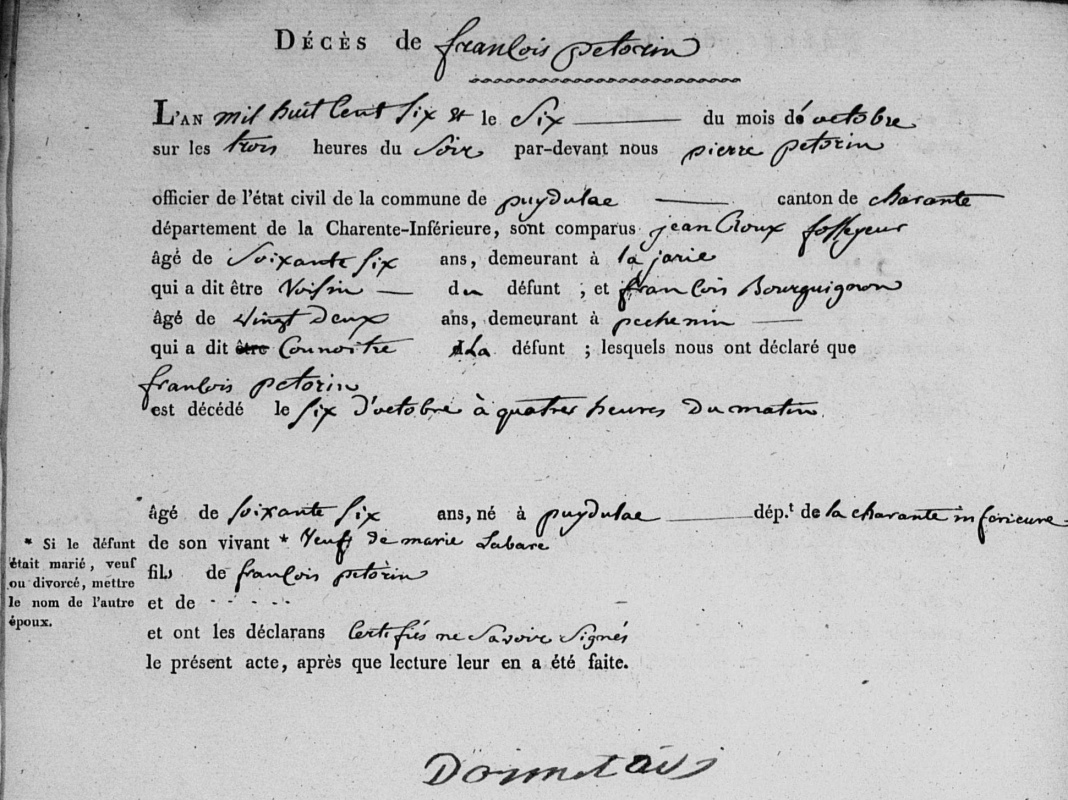 DÉCÈS de francois petorin
L'AN mil huit Cent Six & le Six du mois de octobre
sur les trois heures du Soir par-devant nous pierre petorin
officier de l'état civil de la commune de puydulac canton de charante
département de la Charente-Inférieure, sont comparus jean Croux fossoyeur
âgé de Soixante Six ans, demeurant à la jarie
qui a dit être Voisin du défunt ; et francois Bourguignon
âgé de Vingt Deux ans, demeurant à pechenin
qui a dit être Connoitre défunt ; lesquels nous ont déclaré que
francois petorin
est décédé le Six d'octobre à quatres heures Du matin
âgé de soixante Six ans, né à puydulac dép.t de la charante inferieure
* Si le défunt était marié, veuf ou divorcé, mettre le nom de l'autre époux.
de son vivant * Veuf de marie Labare
fils de francois petorin
et de - - - - -
et ont les déclarans Certifiés ne Savoir Signés
le présent acte, après que lecture leur en a été faite.